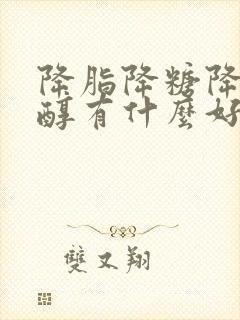 降脂降糖降
醇有什麽好
雙又翔